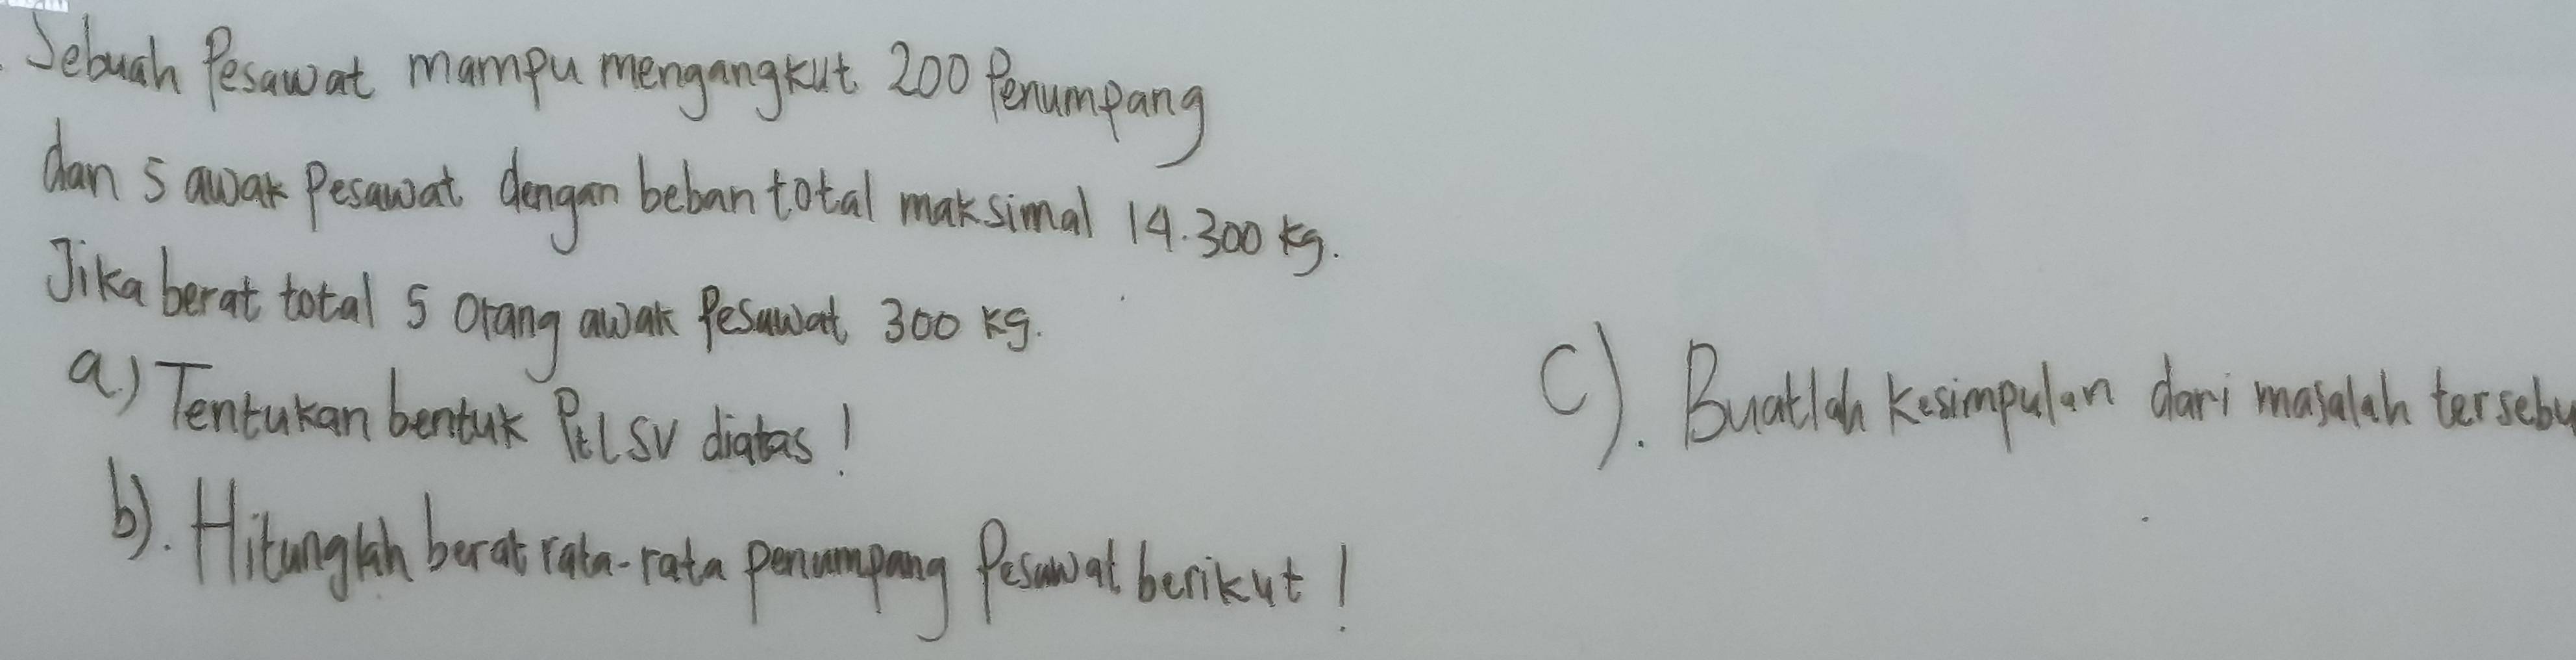 Sebuah Pesawat mampu mengangkut 200 Penumpang
dan 5 awak Pesawat dengan beban total maksimal 14.300 kg.
Jika berat total 5 orang awak Pesawat 300 kg.
a.) Tentukan bentuk PtLSV diatas !
b). Hitunglah berat rata-rata penumpang Pesawat berikut !
C). Buatlah kesimpulan dari masalah tersebu